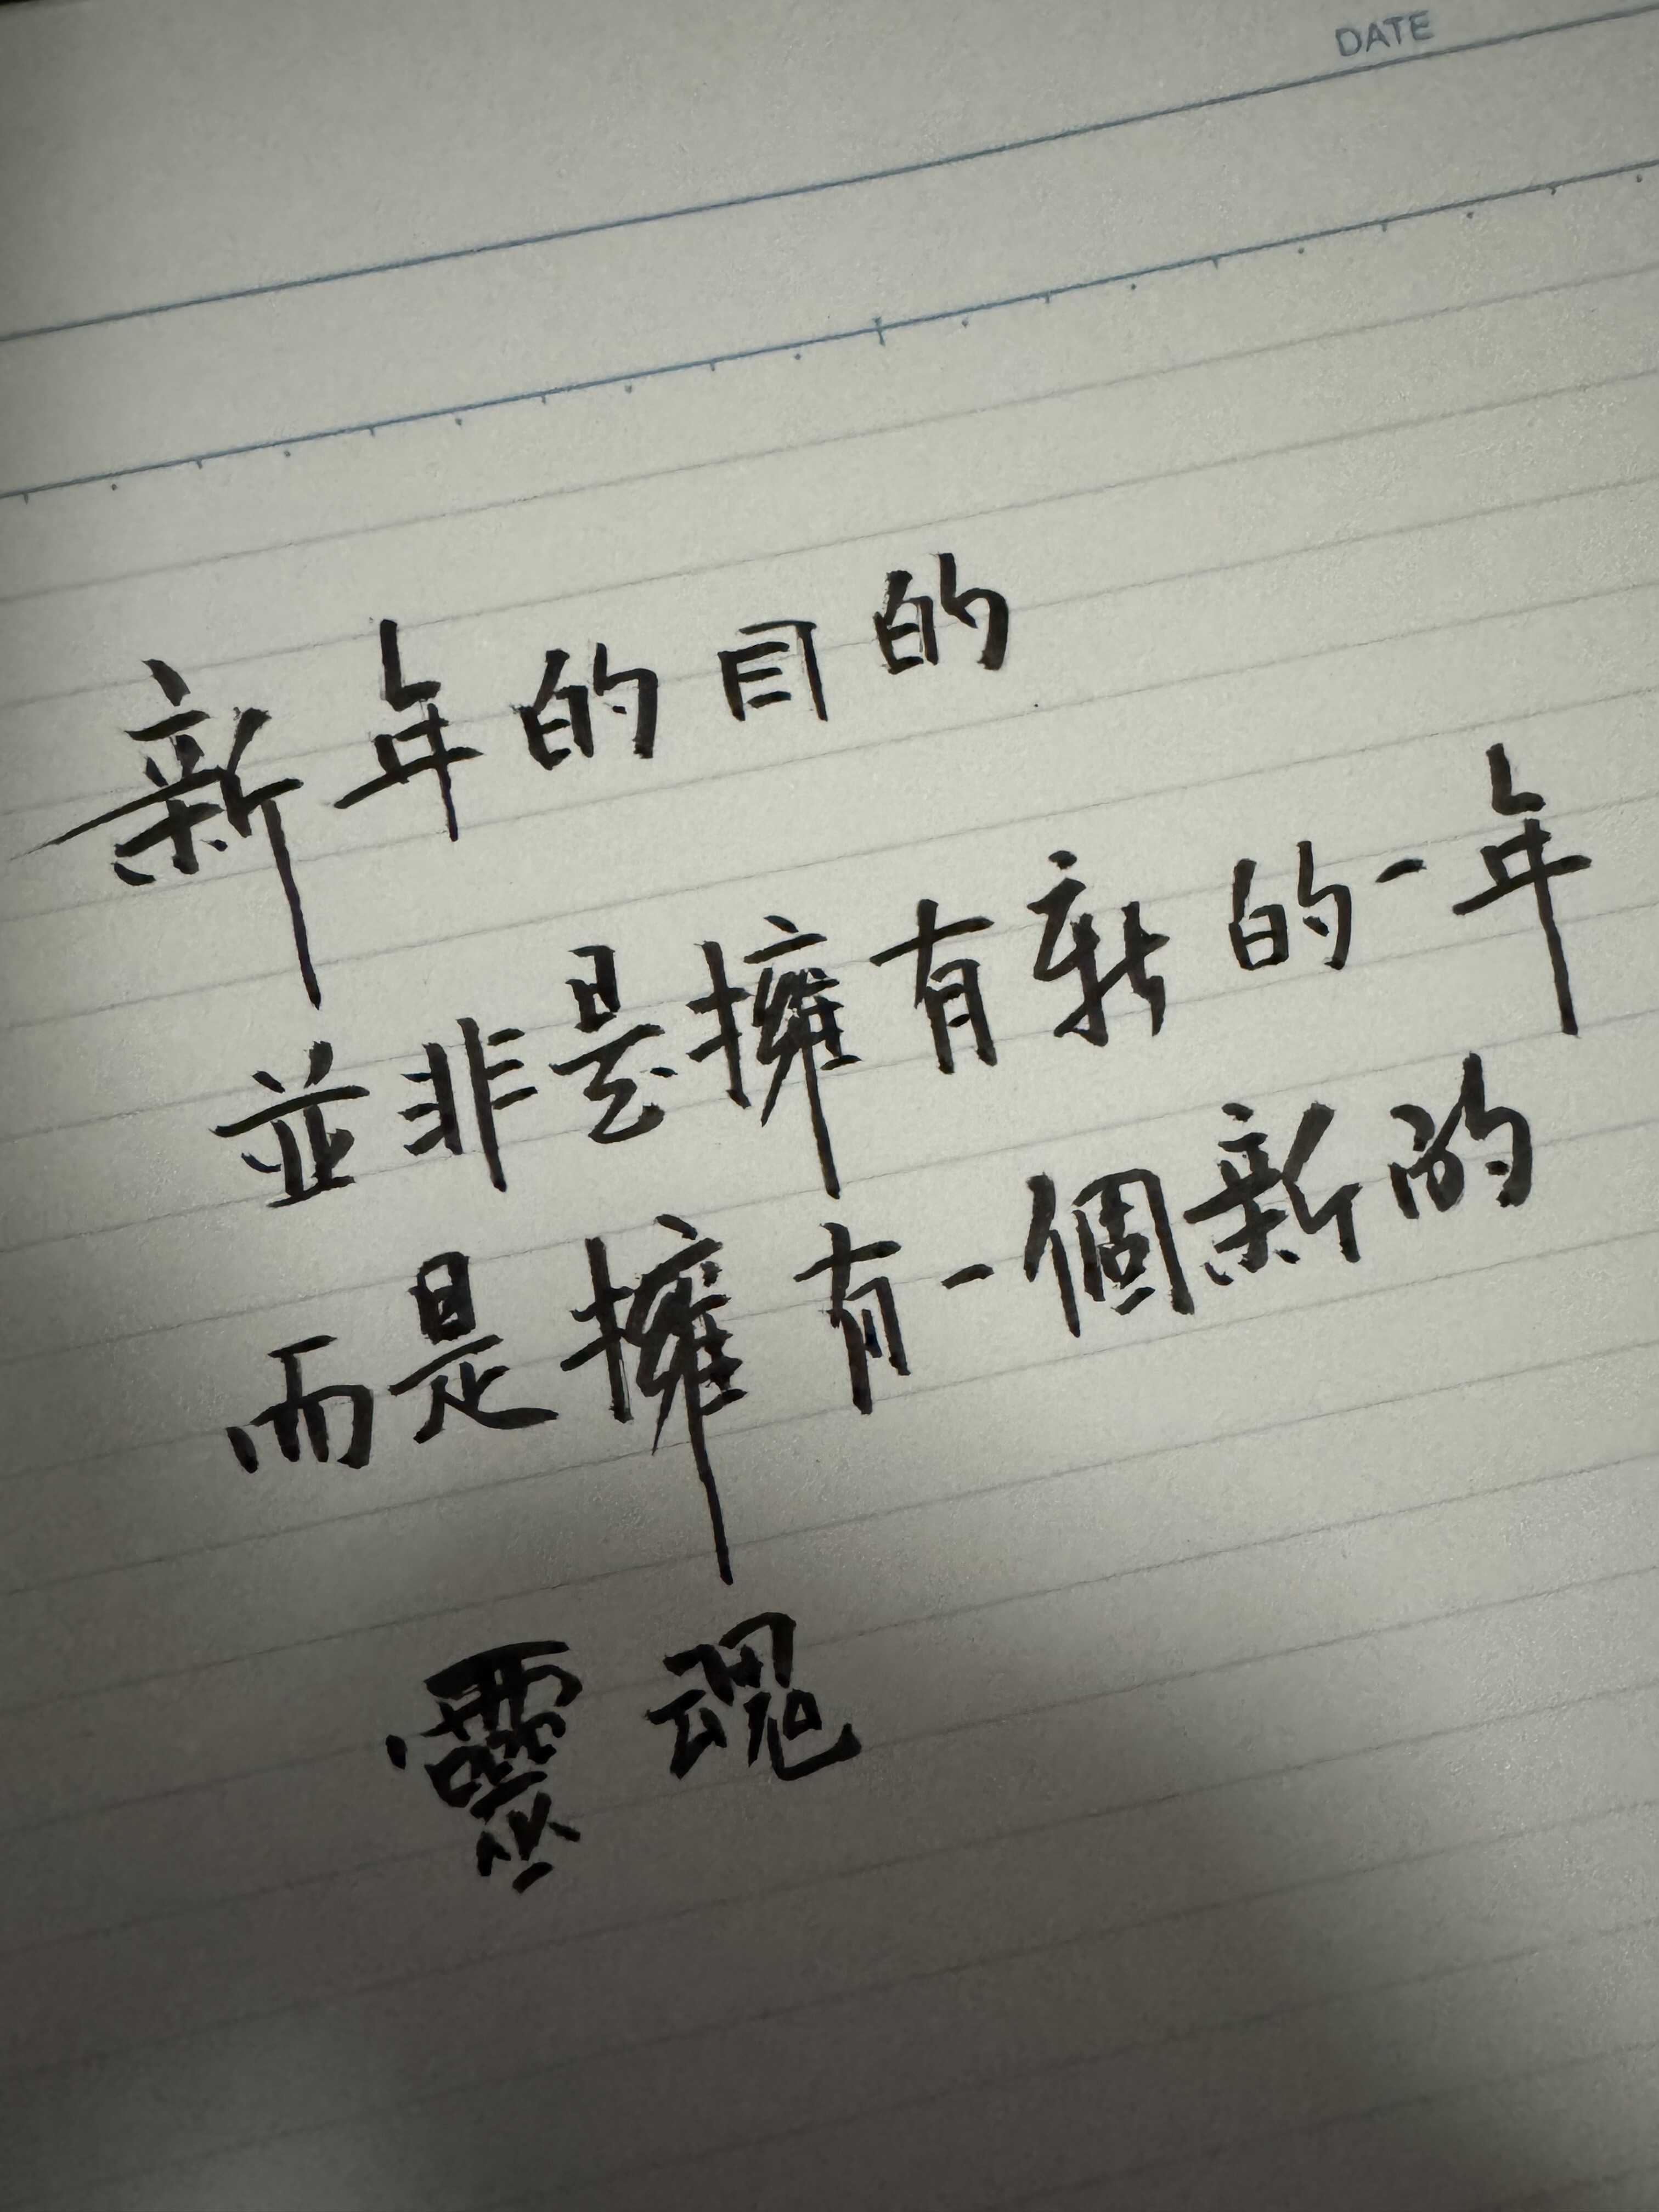 DATE
新年的目的
並非是擁有新的一年
而是擁有一個新的
靈魂